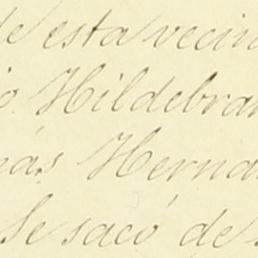 de esta vecin
o Hildebran
más Herna
Se sacó de